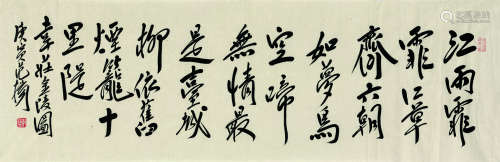 江雨霏
霏江草
齊六朝
如夢鳥
空啼
無情最
是臺城
柳依舊
煙籠十
里隄
韋莊金陵圖
庚寅范揚